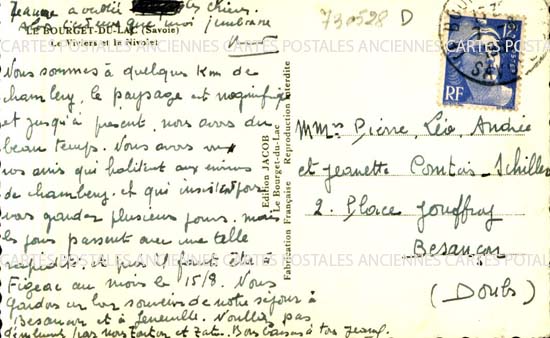 Jeanne a oublié
LE BOURGET-DU-LAC (Savoie)
Le Viviers et le Nivolet
730528 D
12F
RF
CARTES POSTALES ANCIENNES CARTES POSTALES ANCIENNES
Nous sommes à quelques Km de
chambery, le paysage est magnifique
et jusqu'à présent, nous avons du
beau temps. Nous avons vu
nos amis qui habitent aux environs
de chambery, et qui insistent pour
nous garder plusieurs jours. mais
les jours passent avec une telle
rapidité, et puis il faut être à
Figeac au moins le 15/8. Nous
gardons un bon souvenir de notre séjour à
Besançon et à
pas
Bons baisers à tous
Edition JACOB
Le Bourget-du-Lac
Fabrication Française Reproduction interdite
MMrs Pierre, Léo, André
et jeanette Comtois-Schiller
2. Place Jouffroy
Besançon
(Doubs)